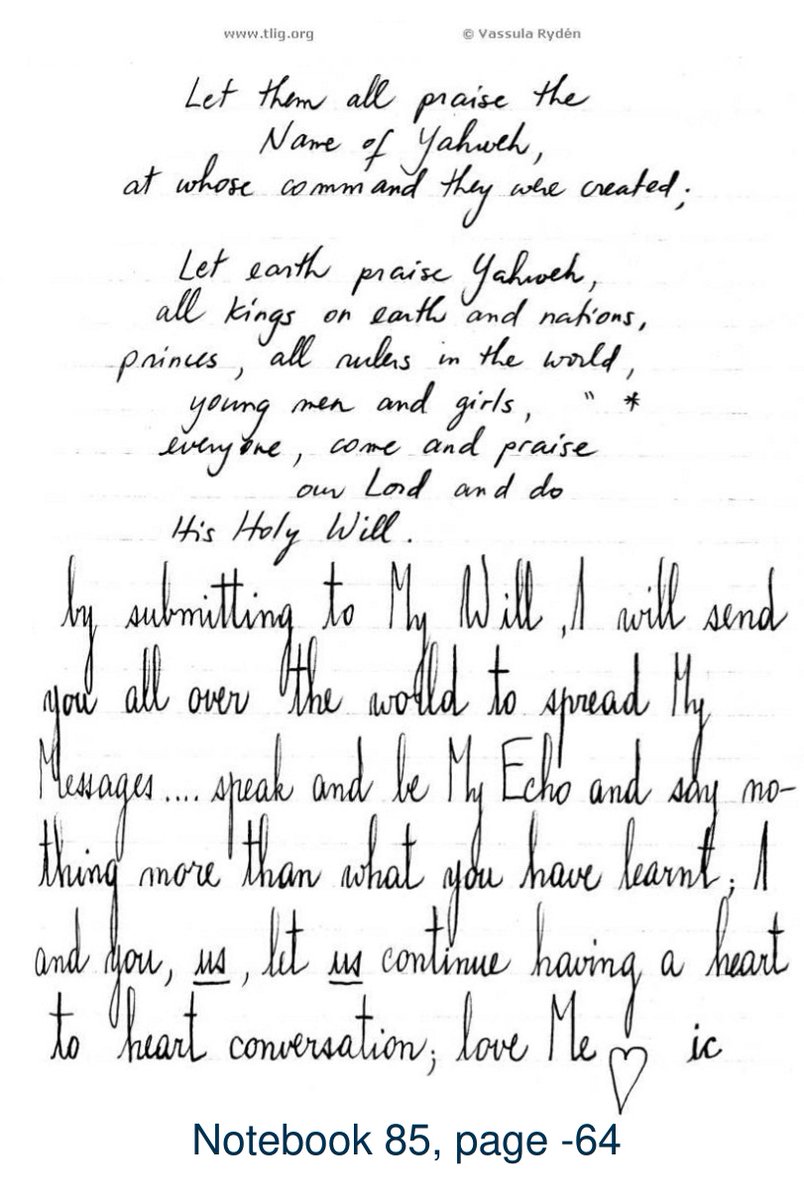 www.tlig.org © Vassula Rydén
Let them all praise the
Name of Yahweh,
at whose command they were created;
Let earth praise Yahweh,
all kings on earth and nations,
princes, all rulers in the world,
young men and girls, " *
everyone, come and praise
our Lord and do
His Holy Will.
by submitting to My Will, I will send
you all over the world to spread My
Messages.... speak and be My Echo and say no-
thing more than what you have learnt; I
and you, us, let us continue having a heart
to heart conversation; love Me ♡ ic
Notebook 85, page -64